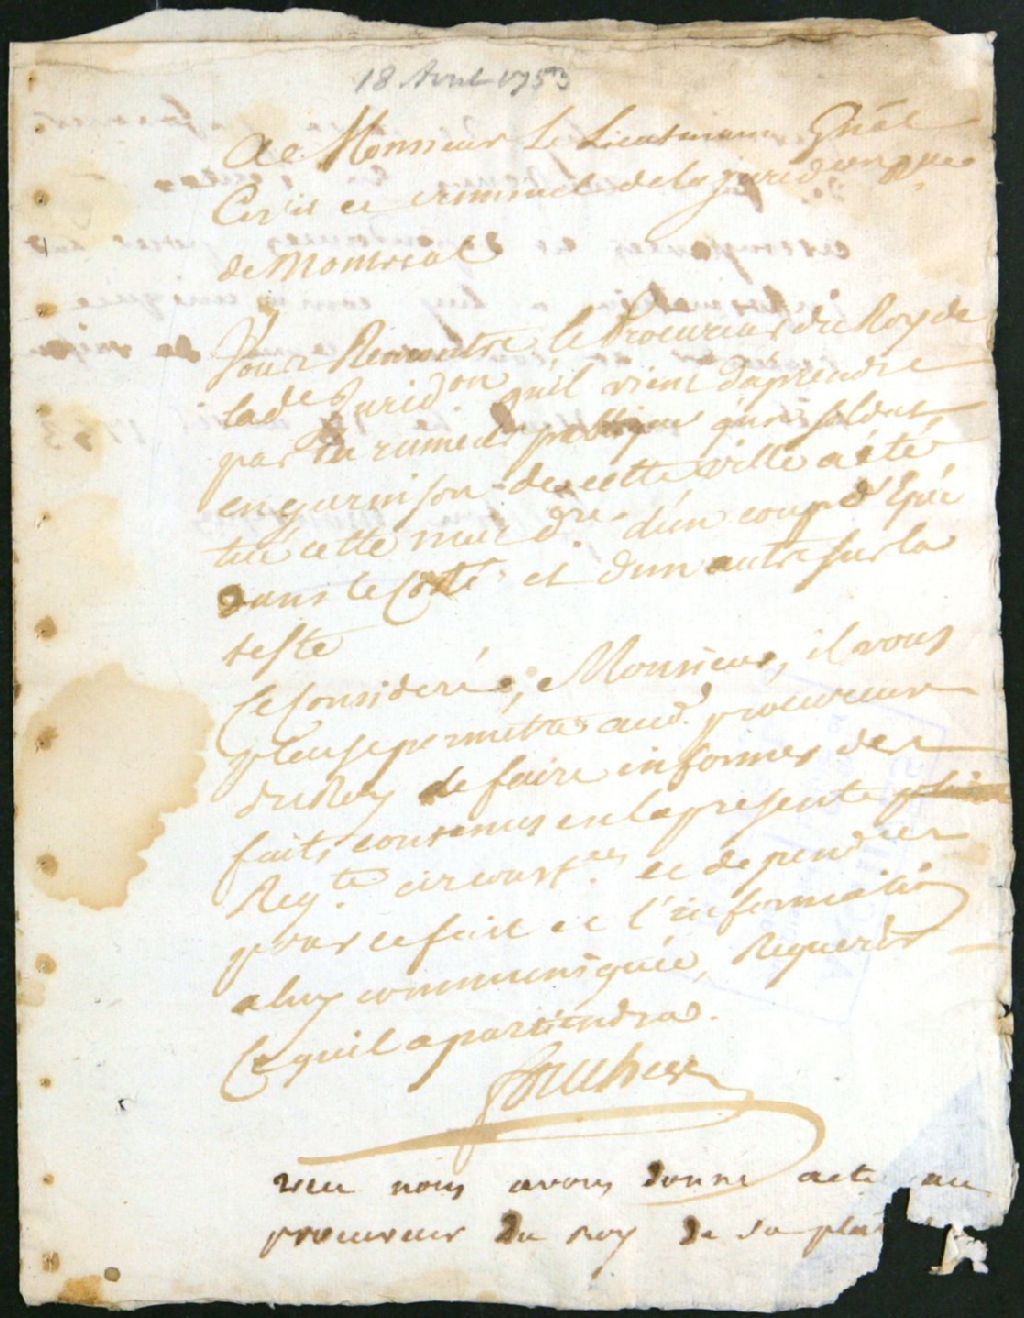 18 Avril 1753
A Monsieur Le Lieutenant Gñal
Civil et criminel de la jurid
de Montreal
Vous Remontre le Procureur du Roy de
lade Juridon quil vient daprendre
par la rumeur publique qu'un soldat
en garnison de cette ville a été
tué cette nuit dre. d'un coup d'Epée
dans le Costé et d'un autre sur la
teste
Ce Consideré, Monsieur, il vous
plaise permettre aud. procureur
du Roy de faire informer des
faits contenus en la presente
Reqte. circonstces. et dependces
pour ce fait et l'information
a luy communiquée, Requerir
Ce quil apartiendra.
Foucher
veu nous avons donné acte au
procureur du roy de sa plai